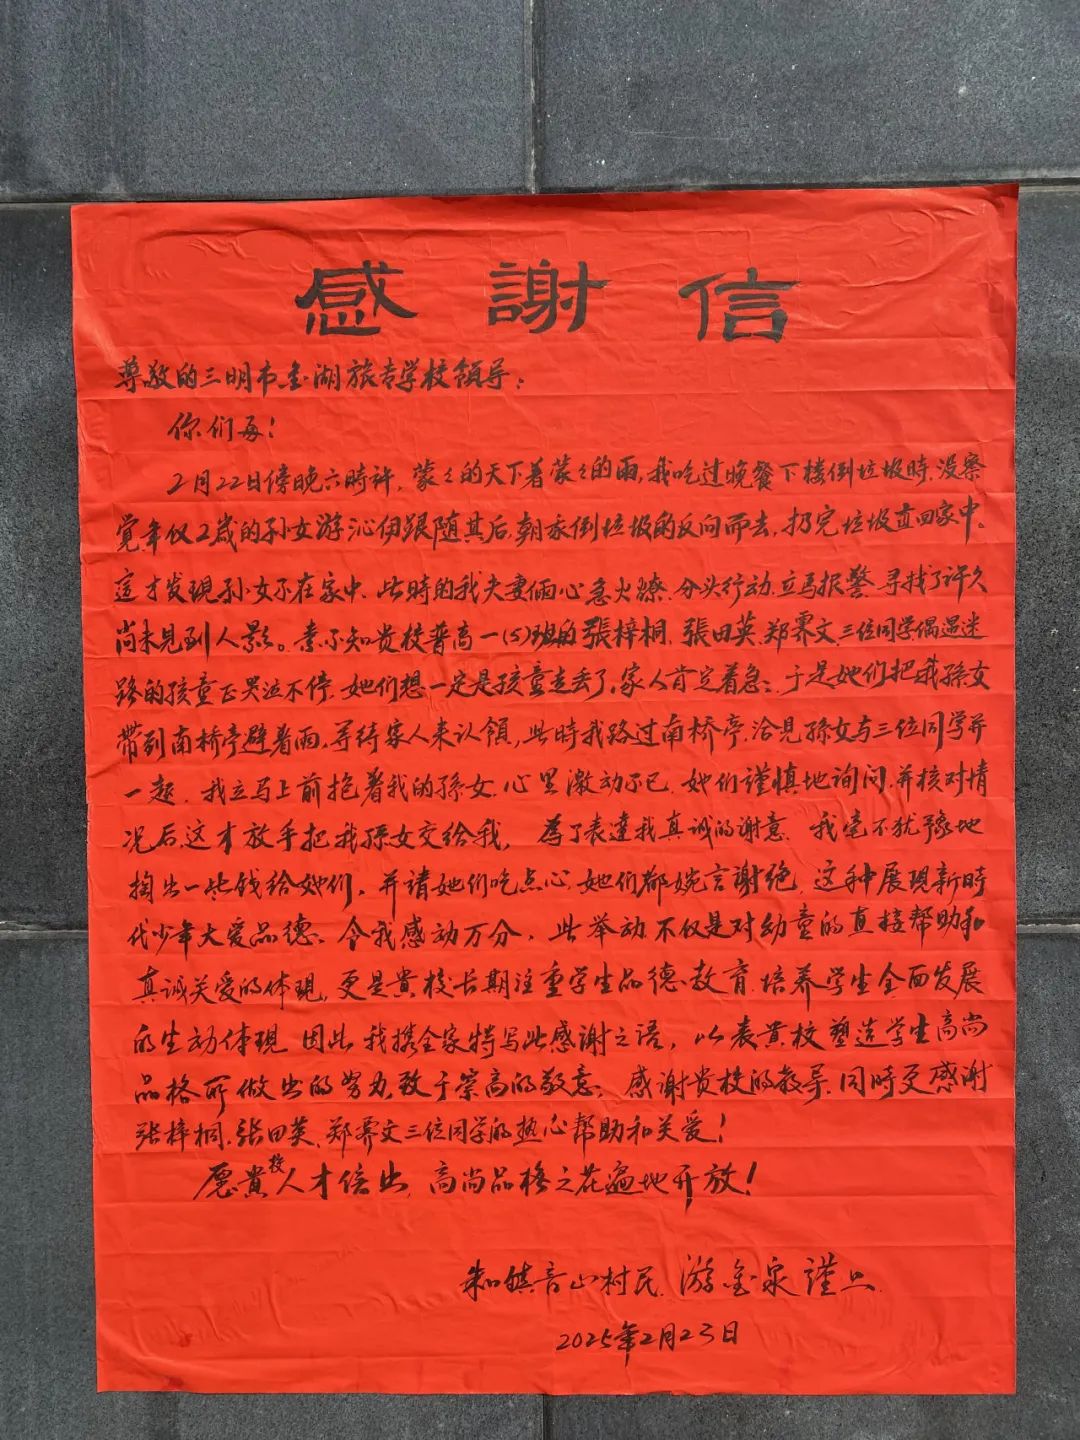 感謝信
尊敬的三明市金湖旅专学校領导：
你们好！
2月22日傍晚六時許，蒙々的天下着蒙々的雨，我吃过晚餐下楼倒垃圾時，没察
覚年仅2歲的孙女游沁伊跟随其后，朝我倒垃圾的反向而去，扔完垃圾直回家中。
這才发現孙女不在家中，此時的我夫妻倆心急火燎，分头行动，立马报警，寻找了许久
尚未見到人影。素不知貴校普高一(5)班的張梓桐，張田英，郑霁文三位同学偶遇迷
路的孩童正哭泣不停，她们想一定是孩童走丢了，家人肯定着急；于是她们把我孫女
带到南桥亭避着雨，等待家人来认領，此時我路过南桥亭，洽見孫女与三位同学并
一起，我立马上前抱着我的孫女，心里激动不已，她们謹慎地询问，并核对情
况后，这才放手把我孫女交给我，為了表達我真誠的谢意，我毫不犹豫地
掏出一些钱给她们，并请她们吃点心，她们都婉言谢绝，这种展現新時
代少年大爱品德，令我感动万分，此举动不仅是对幼童的直接帮助和
真诚关爱的体現，更是貴校长期注重学生品德教育，培养学生全面发展
的生动体現，因此，我携全家特写此感谢之语，以表貴校塑造学生高尚
品格所做出的努力，致于崇高的敬意；感谢贵校的教导，同時更感谢
张梓桐，张田英，郑霁文三位同学的热心帮助和关爱！
愿貴校人才倍出，高尚品格之花遍地开放！
朱口镇音山村民，游金泉謹上
2025年2月23日